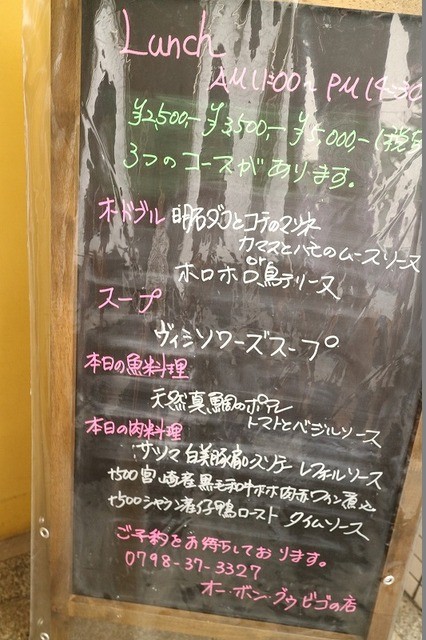 Lunch
AM11:00～PM14:30
¥2,500,-¥3,500,-¥5,000-(税
3つのコースがあります。
オードブル 明石ダコと のマリネ
カマスとハモのムースリーヌ
or
ホロホロ鳥テリーヌ
スープ
ヴィシソワーズスープ
本日の魚料理
天然真鯛のポアレ
トマトとバジルソース
本日の肉料理
サツマ 白美豚 レフォールソース
+500 宮崎産黒毛和牛ホホ肉赤ワイン煮込
+500シャラン産仔鴨ロースト タイムソース
ご予約をお待ちしております。
0798-37-3327
オー・ボン・グウ ビゴの店